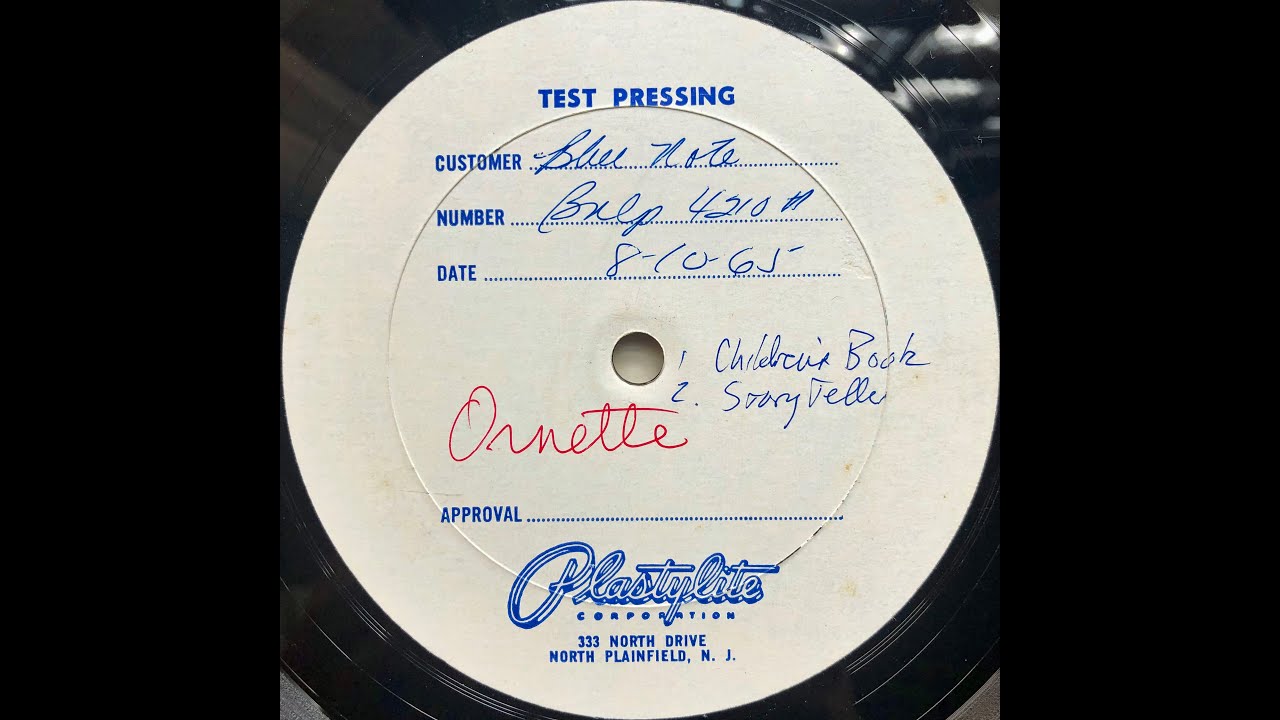 TEST PRESSING
CUSTOMER Blue Note
NUMBER Bnlp 4210 A
DATE 8-10-65
1 Children's Book
2. Story Teller
Ornette
APPROVAL
Plastylite
CORPORATION
333 NORTH DRIVE
NORTH PLAINFIELD, N. J.